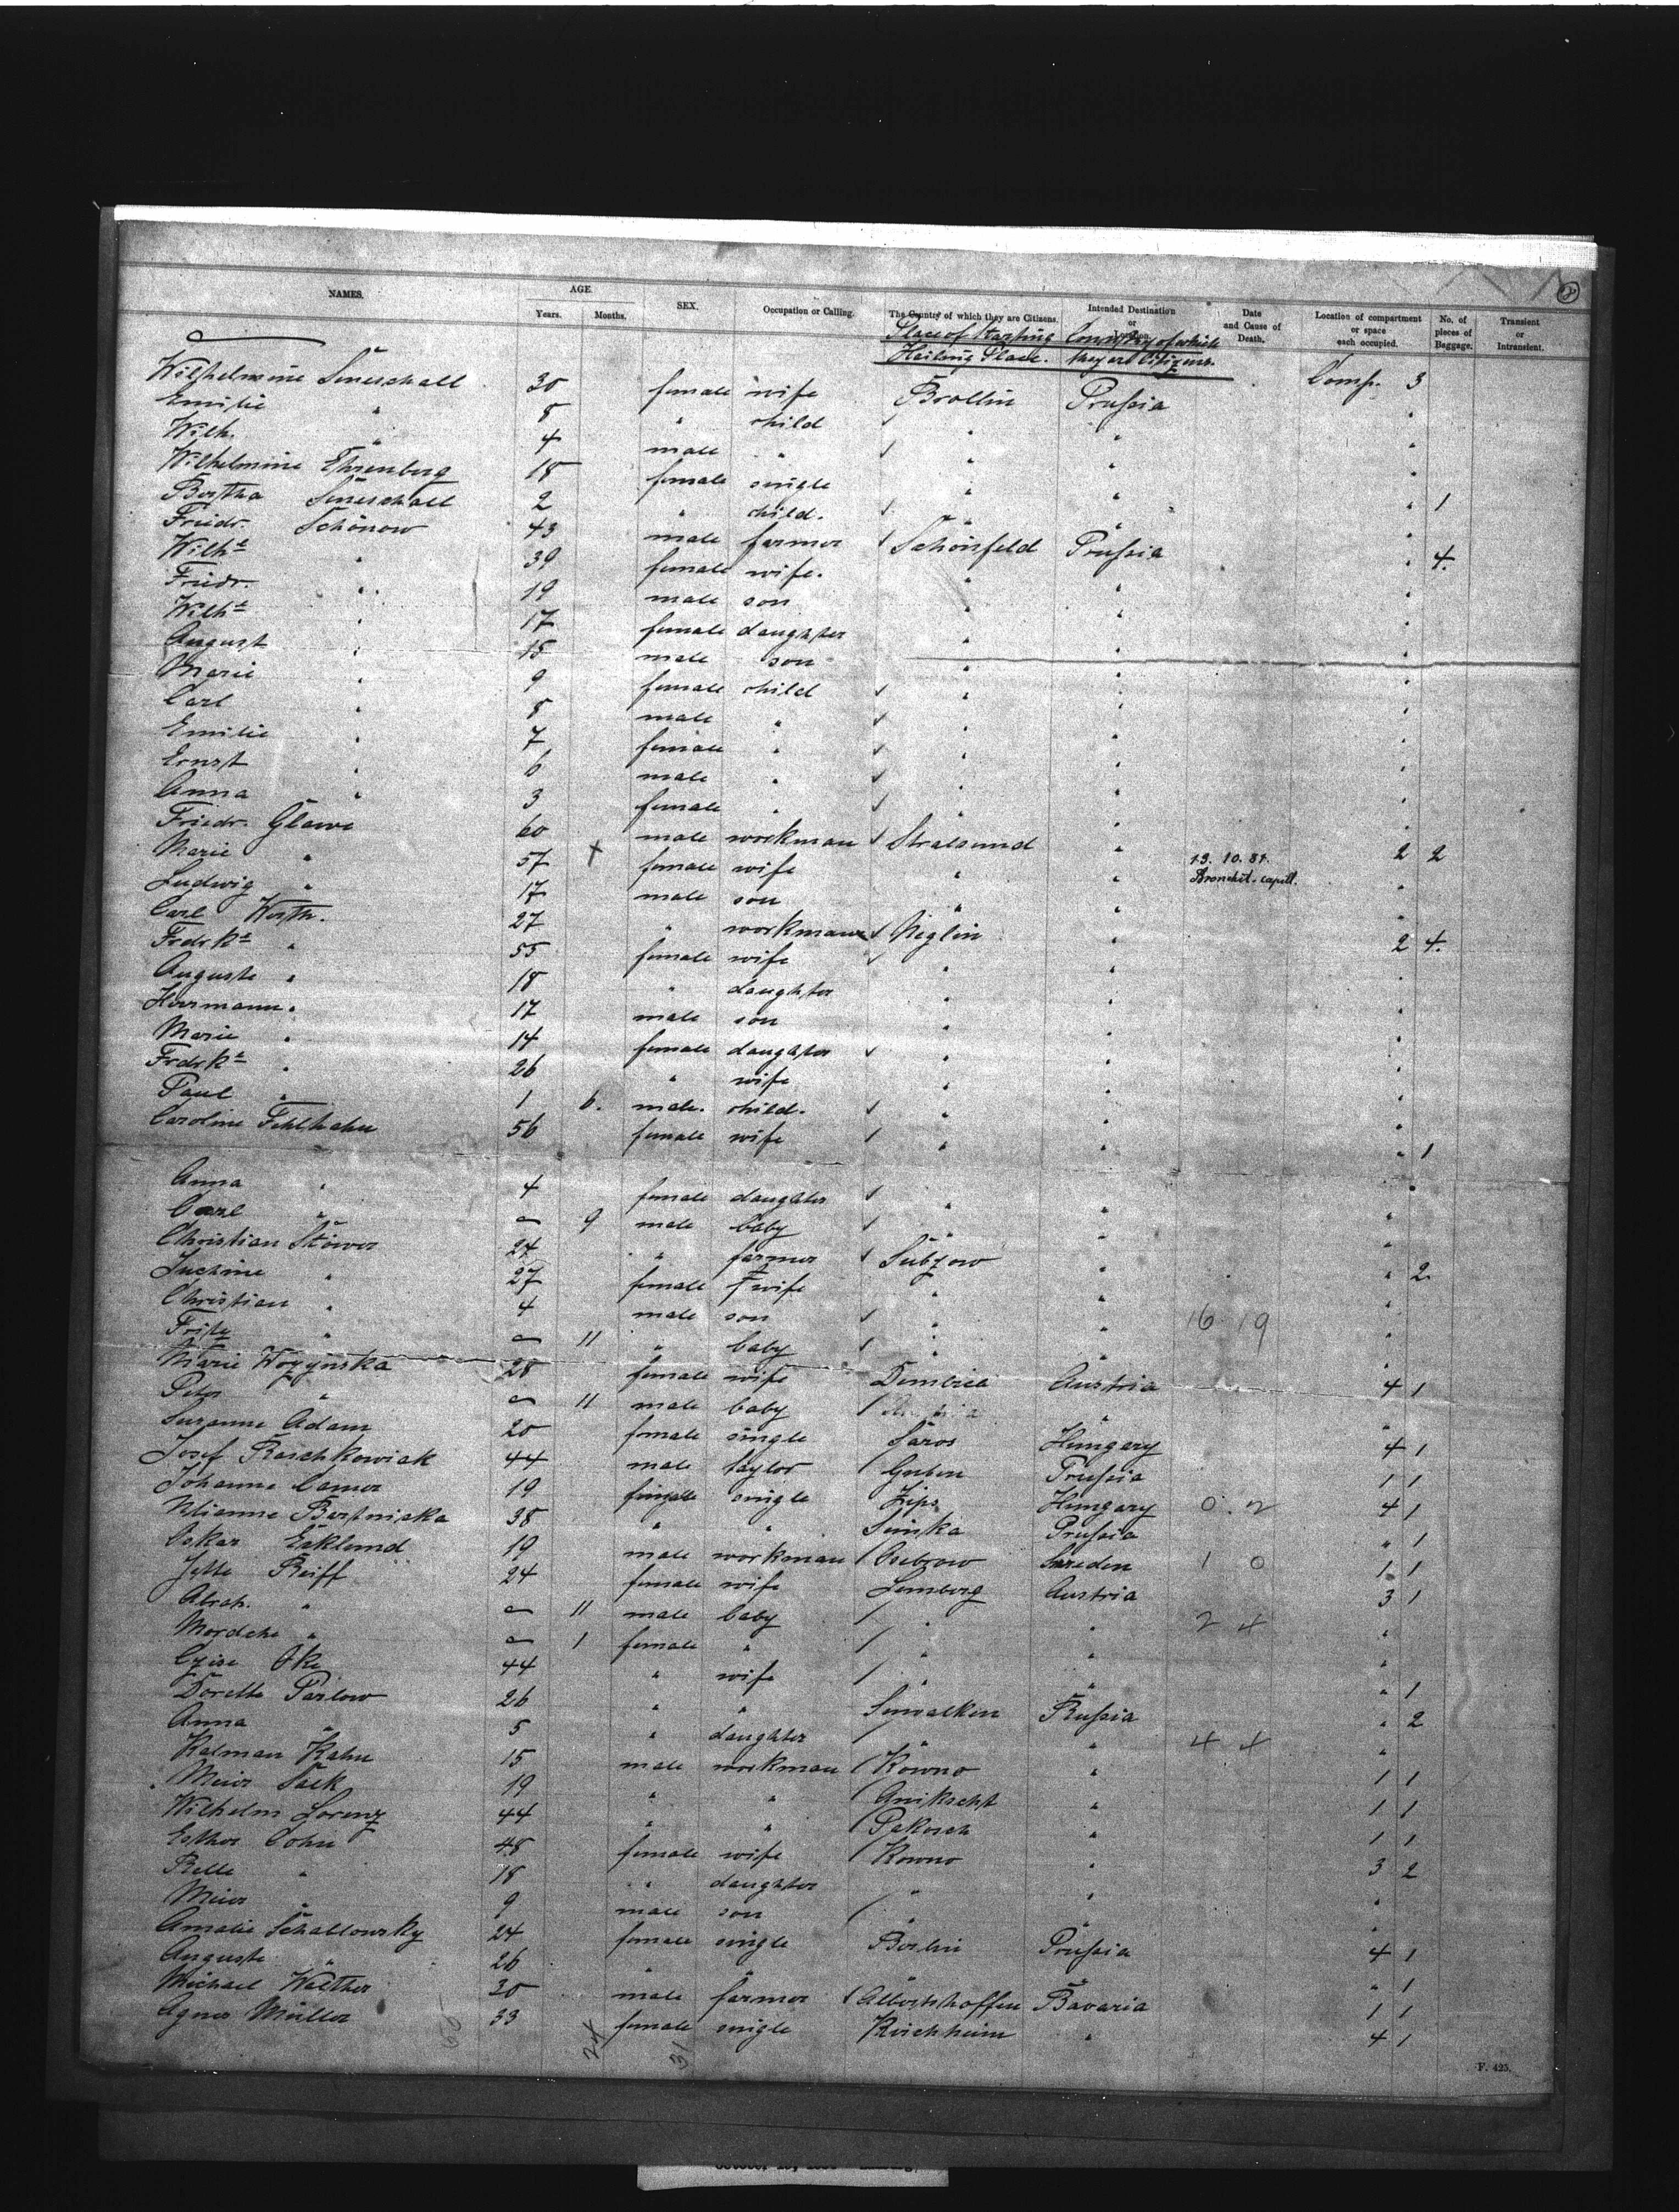 NAMES. AGE. Years. Months. SEX. Occupation or Calling. The Country of which they are Citizens. Intended Destination or Location. Date and Cause of Death. Location of compartment or space each occupied. No. of pieces of Baggage. Transient or Intransient.
Place of Starting Country of which
Hailing Place. they are Citizens.
Wilhelmine 30 female wife Brollin Prussia Comp. 3
Emilie " 8 " child " "
Wilh. " 4 male " " " "
Wilhelmine Ehrenberg 18 female single " " "
Bertha 2 " child. " " " 1
Friedr. Schönow 43 male farmer Schönfeld Prussia "
Wilhe " 39 female wife. " " " 4.
Friedr. " 19 male son " " "
Wilhe " 17 female daughter " " "
August " 15 male son " " "
Marie " 9 female child " " "
Carl " 8 male " " " "
Emilie " 7 female " " " "
Ernst " 6 male " " " "
Anna " 3 female " " " "
Friedr. Glawe 60 male workman Stralsund " 2 2
Marie " 57 + female wife " " 13. 10. 81. Bronchit. capill. "
Ludwig " 17 male son " " "
Carl Werth. 27 " workman Neglin " 2 4.
Frdrke " 55 female wife " " "
Auguste " 18 " daughter " " "
Herrmann " 17 male son " " "
Marie " 14 female daughter " " "
Frdrke " 26 " wife " " "
Paul " 1 6. male. child. " " "
Caroline Fehlhahn 56 female wife " " " 1
Anna " 4 female daughter " " "
Carl " 9 male baby " " "
Christian Stöwer 24 " farmer Subzow " " 2.
" 27 female wife " " "
Christian " 4 male son " " 16 19 "
Fritz " 11 " baby " " "
Marie 28 female wife Dembica Austria 4 1
Peter " 11 male baby " "
Susanne Adam 20 female single Saros Hungary 4 1
Josef Raschkowiak 44 male taylor Guben Prussia 1 1
Johanna 19 female single Zips Hungary 0 2 4 1
38 " " Prussia " 1
Oskar Eaklund 19 male workman Sweden 1 0 1 1
Jytte Reiff 24 female wife Lemberg Austria 3 1
Abrah. " 11 male baby " " 2 4 "
Mordche " 1 female " " " "
44 " wife " " " 1
Dorette Parlow 26 " " Suwalken Russia " 2
Anna " 5 " daughter " " 4 4 "
Kalman Kahn 15 male workman Kowno " 1 1
Meier Sack 19 " " Anikscht " 1 1
Wilhelm Lorenz 44 " " Pakosch " 1 1
Esther Cohn 48 female wife Kowno " 3 2
Belle " 18 " daughter " " "
Meier " 9 male son " " "
Amalie Schablowsky 24 female single Berlin Prussia 4 1
Auguste " 26 " " " " " 1
Michael Walther 30 male farmer Albertshoffen Bavaria 1 1
Agnes Müller 33 female single Kirchheim " 4 1
24 31
F. 425.